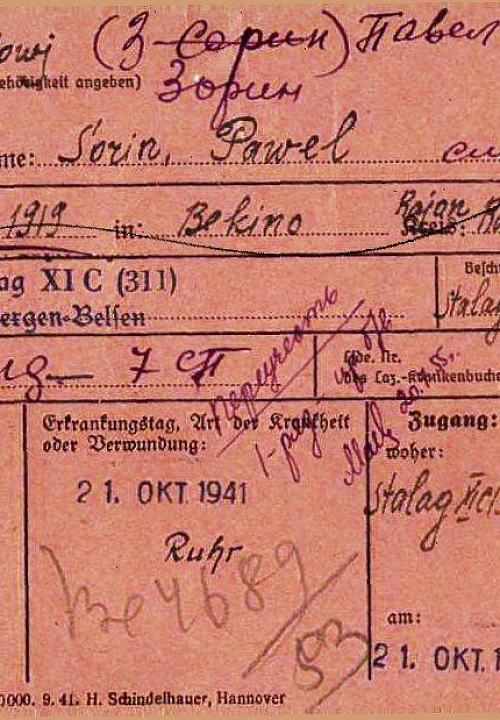 (З Сорин) Павел
ehörigkeit angeben)
Зорин
me: Sorin, Pawel
1919 in: Bekino Rajan
Kreis:
ag XI C (311)
ergen-Belsen
Stalag
7 СП
Lfde. Nr.
des Laz.-Krankenbuches
Перечесть
Erkrankungstag, Art der Krankheit
oder Verwundung:
Zugang:
woher:
21. OKT 1941
Stalag XI C
Ruhr
Be 4689
53
am:
21. OKT. 1
0000. 9. 41. H. Schindelhauer, Hannover